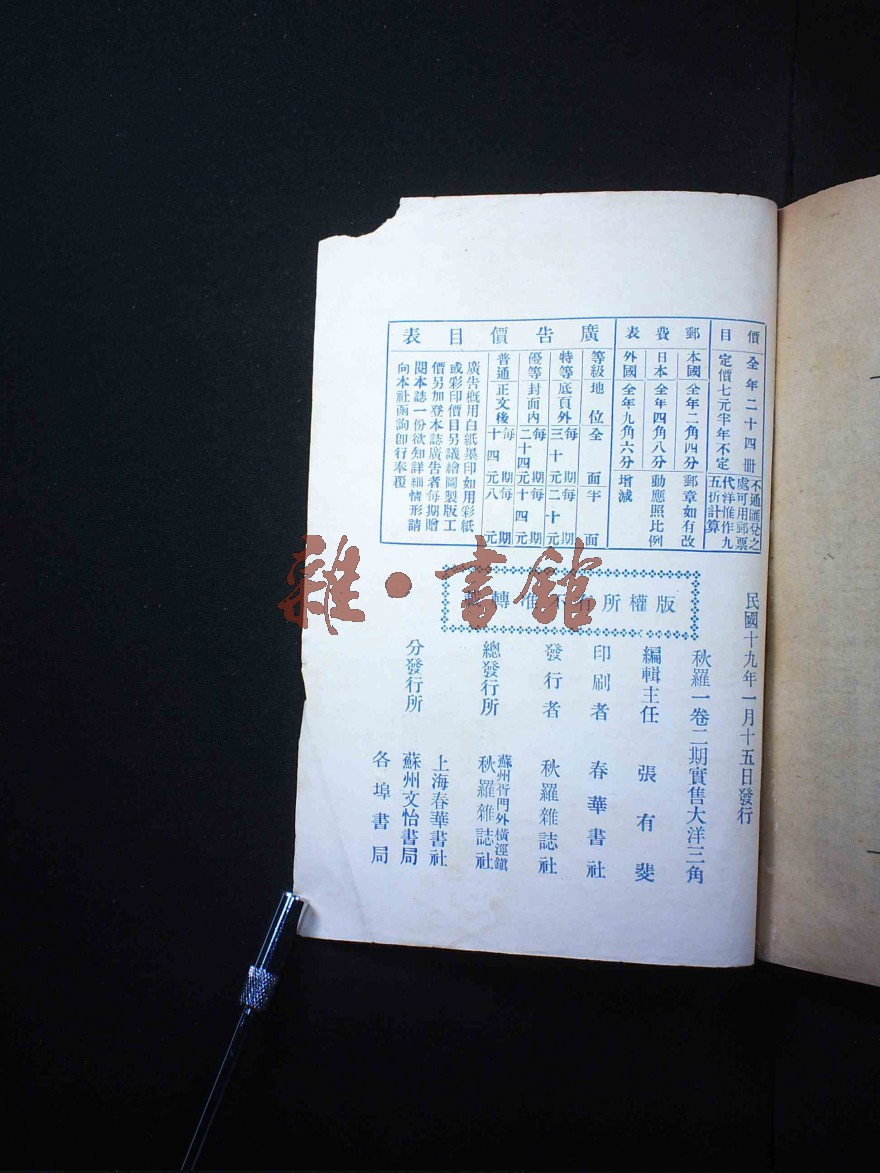 價目
全年二十四冊
定價七元半年不定
不通匯兌之
處可用郵票
代洋惟作九
五折計算
郵費表
本國全年二角四分
日本全年四角八分
外國全年九角六分
郵章如有改
動應照比例
增減
廣告價目表
等級 地位 全面 半面
特等 底頁外 每期三十元 每期二十元
優等 封面內 每期二十四元 每期十四元
普通 正文後 每期十四元 每期八元
廣告概用白紙墨印如用彩紙
或彩印價目另議繪圖製版工
價另加登本誌廣告者每期贈
閱本誌一份欲知詳細情形請
向本社函詢卽行奉覆
民國十九年一月十五日發行
版權所有不准轉
秋羅一卷二期實售大洋三角
編輯主任 張有斐
印刷者 春華書社
發行者 秋羅雜誌社
總發行所 蘇州胥門外橫涇鎭
秋羅雜誌社
分發行所 上海春華書社
蘇州文怡書局
各埠書局
雜·書館